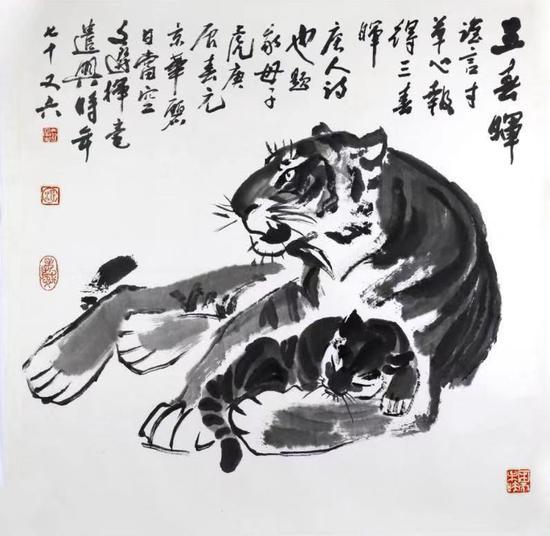 三春暉
誰言寸
草心報
得三春
暉
唐人詩
也題
母子
虎庚
辰春元
京華麗
日當空
揮毫
遣興時年
七十又六